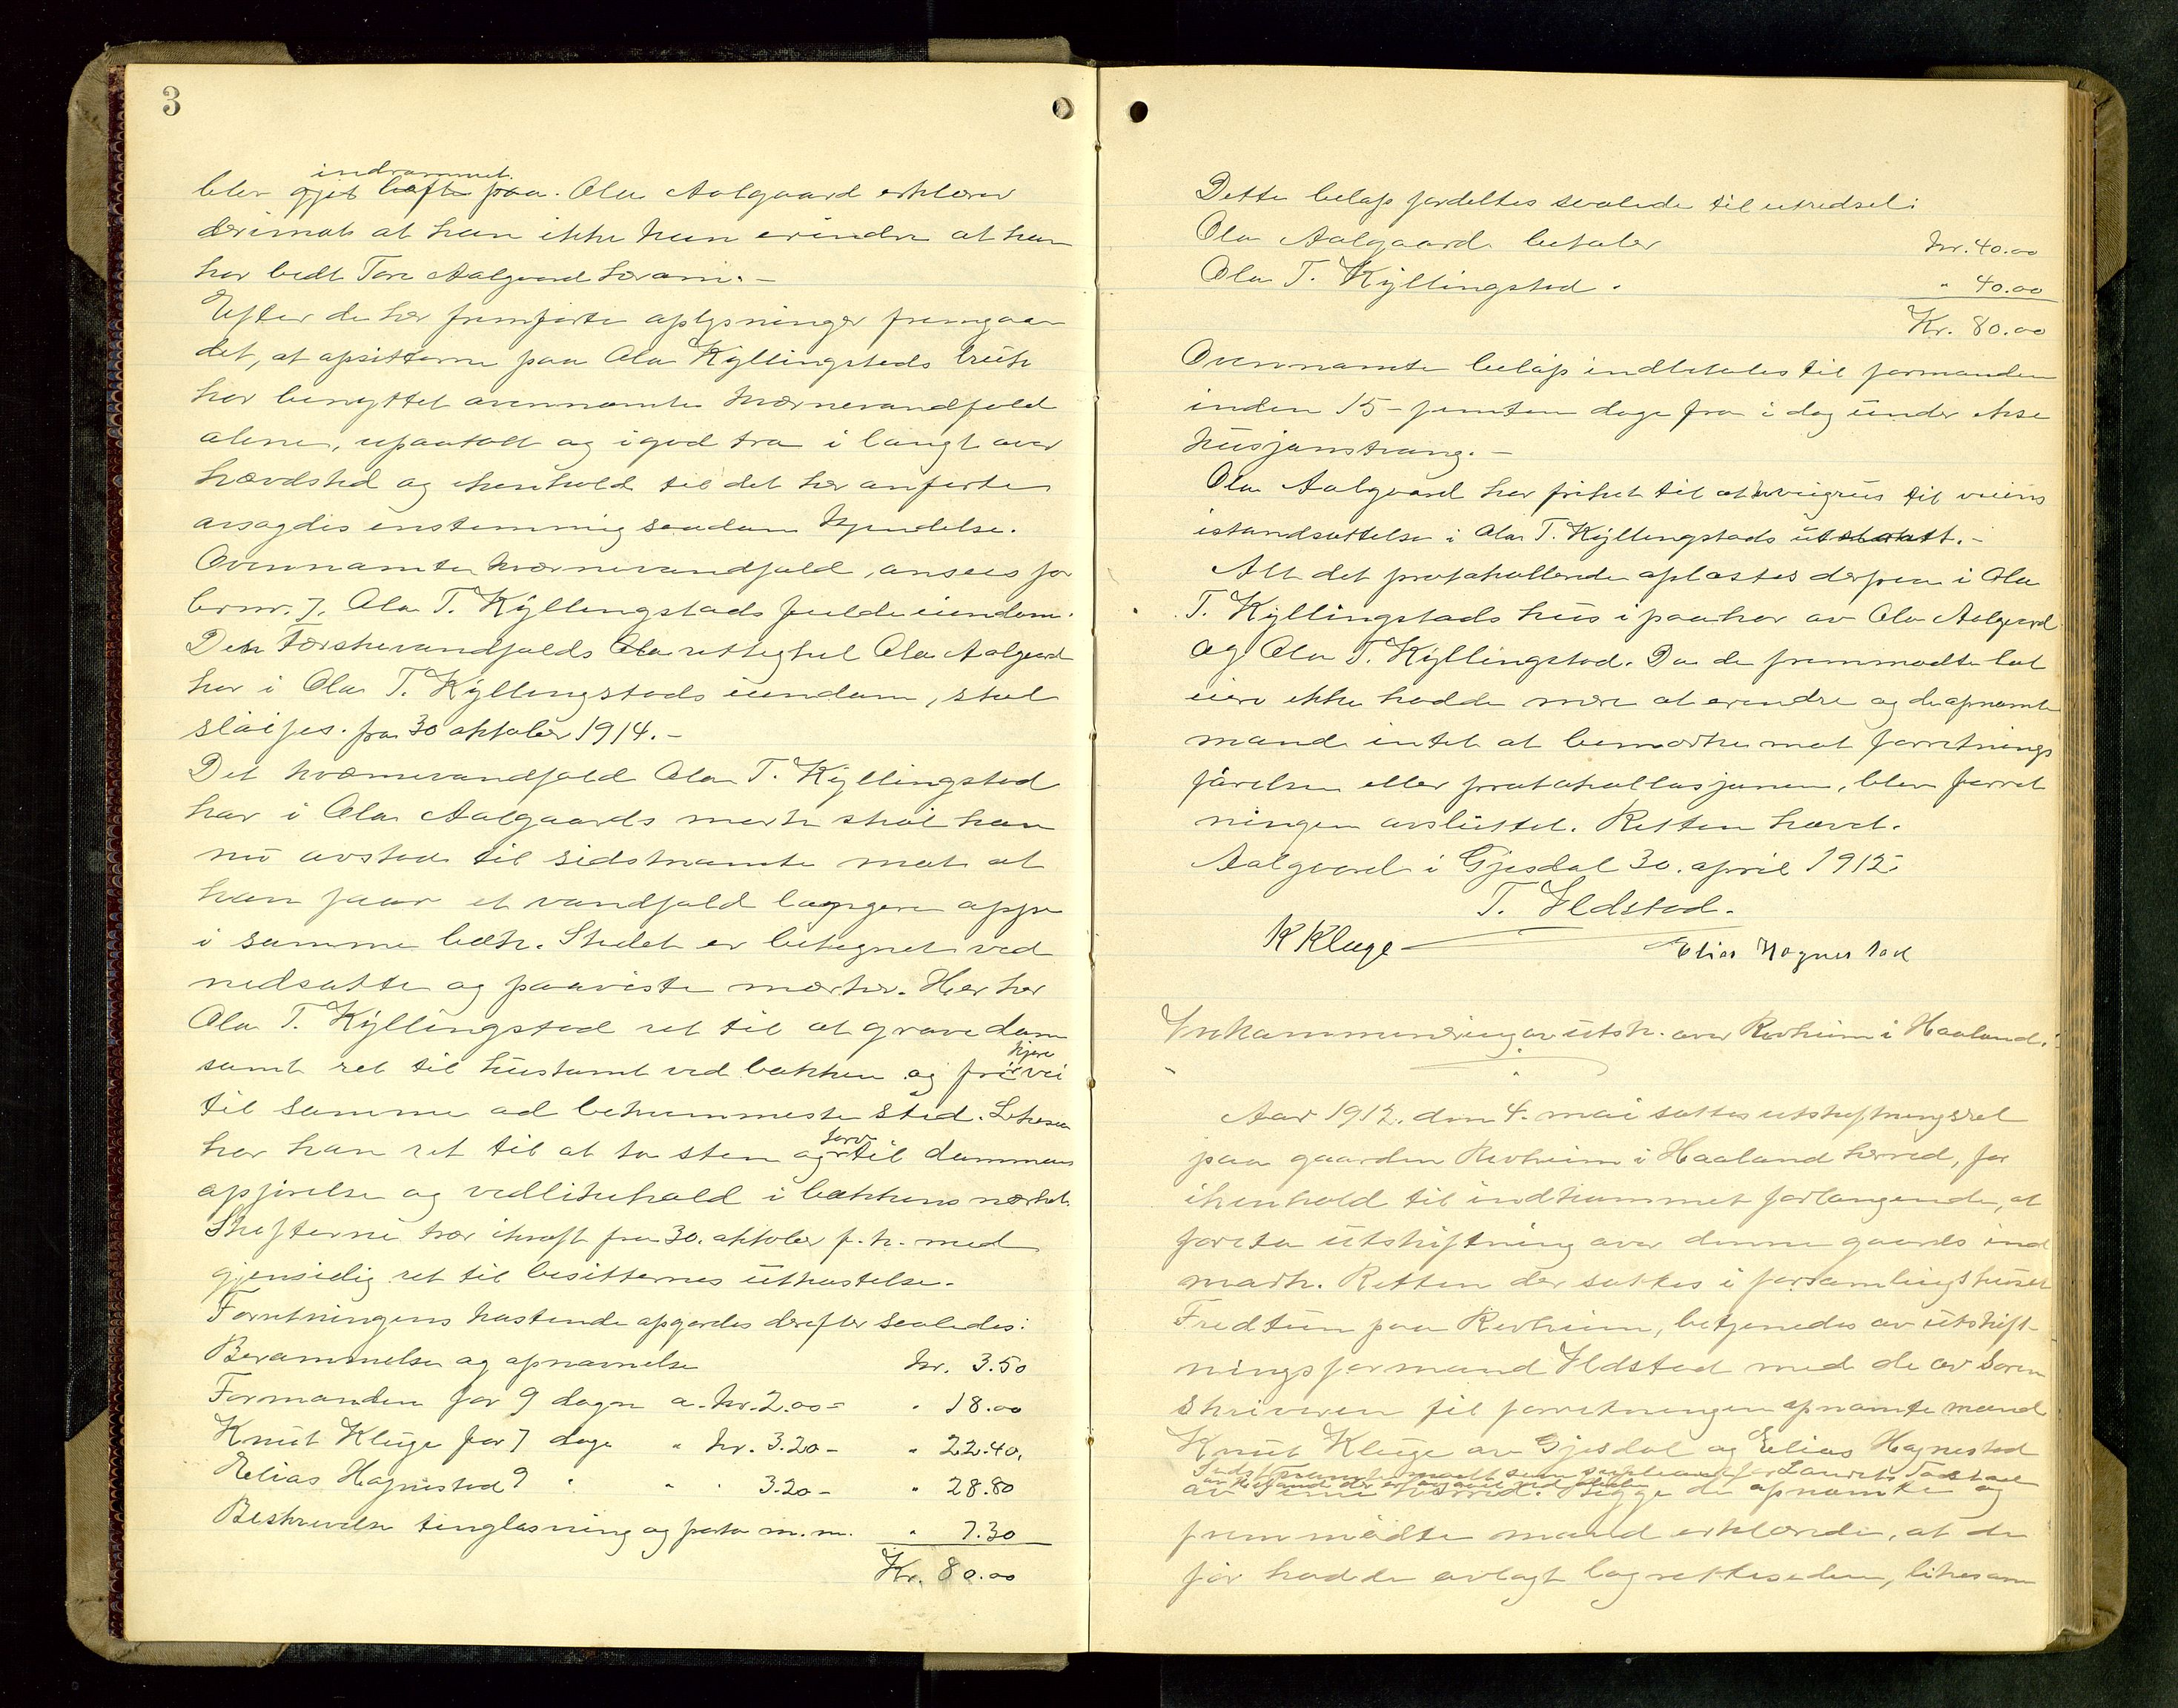 3
indrømmet
blev gjet hefte paa. Ola Aalgaard erklærer
derimot at han ikke kan erindre at han
har bedt Tore Aalgaard herom.-
Efter de her fremførte oplysninger fremgaar
det, at opsitterne paa Ola Kyllingstads bruk
har benyttet ovennævnte kværnevandfald
alene, upaatalt og i god tro i langt over
hævdstid og i henhold til det her anførte
avsagdes enstemmig saadan kjendelse.
Ovennævnte kværnevandfald, ansees for
brnr. 7. Ola T. Kyllingstads fulde eiendom.
Den Tørskevandfalds rettighet Ola Aalgaard
har i Ola T. Kyllingstads eiendom, skal
sløifes fra 30 oktober 1914.-
Det kværnevandfald Ola T. Kyllingstad
har i Ola Aalgaards mark skal han
nu avstaa til sidstnævnte mot at
han faar et vandfald længere oppe
i samme bæk. Stedet er betegnet ved
nedsatte og paaviste merker. Her har
Ola T. Kyllingstad ret til at grave dam
kjøre
samt ret til hustomt ved bækken og fri vei
til samme ad bekvemmeste sted. Likesaa
torv
har han ret til at ta sten og til dammens
opførelse og vedlikehold i bækkens nærhet.
Skifterne trær i kraft fra 30. oktober f. k. med
gjensidig ret til besitternes utkastelse.
Forretningens kostende opgjordes derefter saaledes:
Berammelse og opnævnelse Kr. 3.50
Formanden for 9 dage a. kr. 2.00 = " 18.00
Knut Kluge for 7 dage " kr. 3.20 - " 22.40.
Elias Høgnestad 9 " " " 3.20 - " 28.80
Beskrivelse tinglæsning og porto m.m. " 7.30
Kr. 80.00
Dette beløp fordeltes saalede til utredsel:
Ola Aalgaard betaler kr. 40.00
Ola T. Kyllingstad " " 40.00
Kr. 80.00
Ovennævnte beløp indbetales til formanden
inden 15 - femten dage fra i dag under ekse
kusjonstvang.-
Ola Aalgaard har frihet til at ta veigrus til veiens
istandsættelse i Ola T. Kyllingstads utslaatt.-
Alt det protokollerede oplæstes derpaa i Ola
T. Kyllingstads hus i paahør av Ola Aalgaard
og Ola T. Kyllingstad. Da de fremmødte lod
eiere ikke hadde mere at erindre og de opnævnte
mænd intet at bemærke mot forretnings
førelsen eller protokollasjonen, blev forret
ningen avsluttet. Retten hævet.
Aalgaard i Gjesdal 30. april 1912
T. Ildstad.
K Kluge Elias Høgnestad
Inkammindring av utsk. over Revheim i Haaland.
Aar 1912. den 4. mai sattes utskiftningsret
paa gaarden Revheim i Haaland herred, for
i henhold til indkommet forlangende, at
foreta utskiftning over denne gaards ind
mark. Retten der sattes i forsamlingshuset
Fredtun paa Revheim, betjenedes av utskift-
ningsformand Ildstad med de av Soren
skriveren til forretningen opnævnte mænd
Knut Kluge av Gjesdal og Elias Høgnestad
Sidstnævnte møtte som supleant for Laurits
av Time herred. Begge de opnævnte og
fremmødte mænd erklærede, at de
før hadde avlagt lagretteseden, likesom